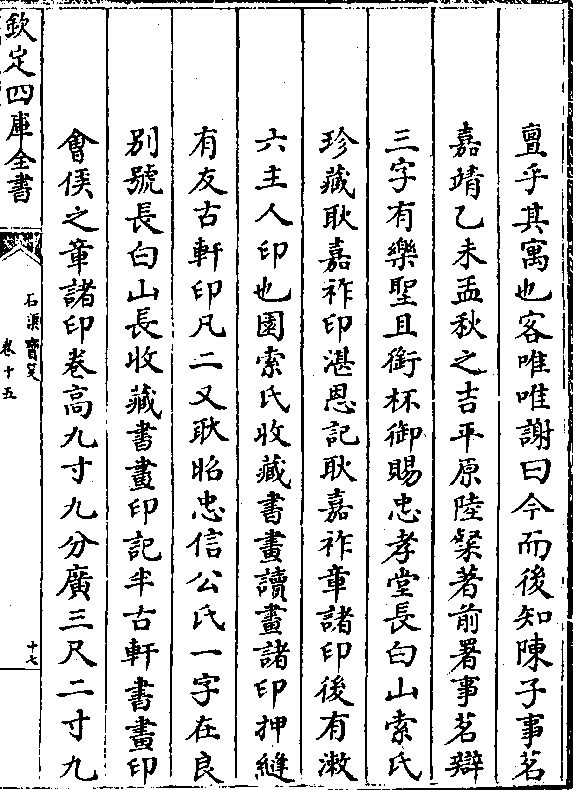 亶乎其寓也客唯唯謝曰今而後知陳子事茗
嘉靖乙未孟秋之吉平原陸粲著前署事茗辯
三字有樂聖且銜杯御賜忠孝堂長白山索氏
珍藏耿嘉祚印湛恩記耿嘉祚章諸印後有漱
六主人印也園索氏收藏書畫讀畫諸印押縫
有友古軒印凡二又耿昭忠信公氏一字在良
别號長白山長收藏書畫印記半古軒書畫印
會侯之章諸印卷高九寸九分廣三尺二寸九
欽定四庫全書
石渠寶笈
卷十五
十七